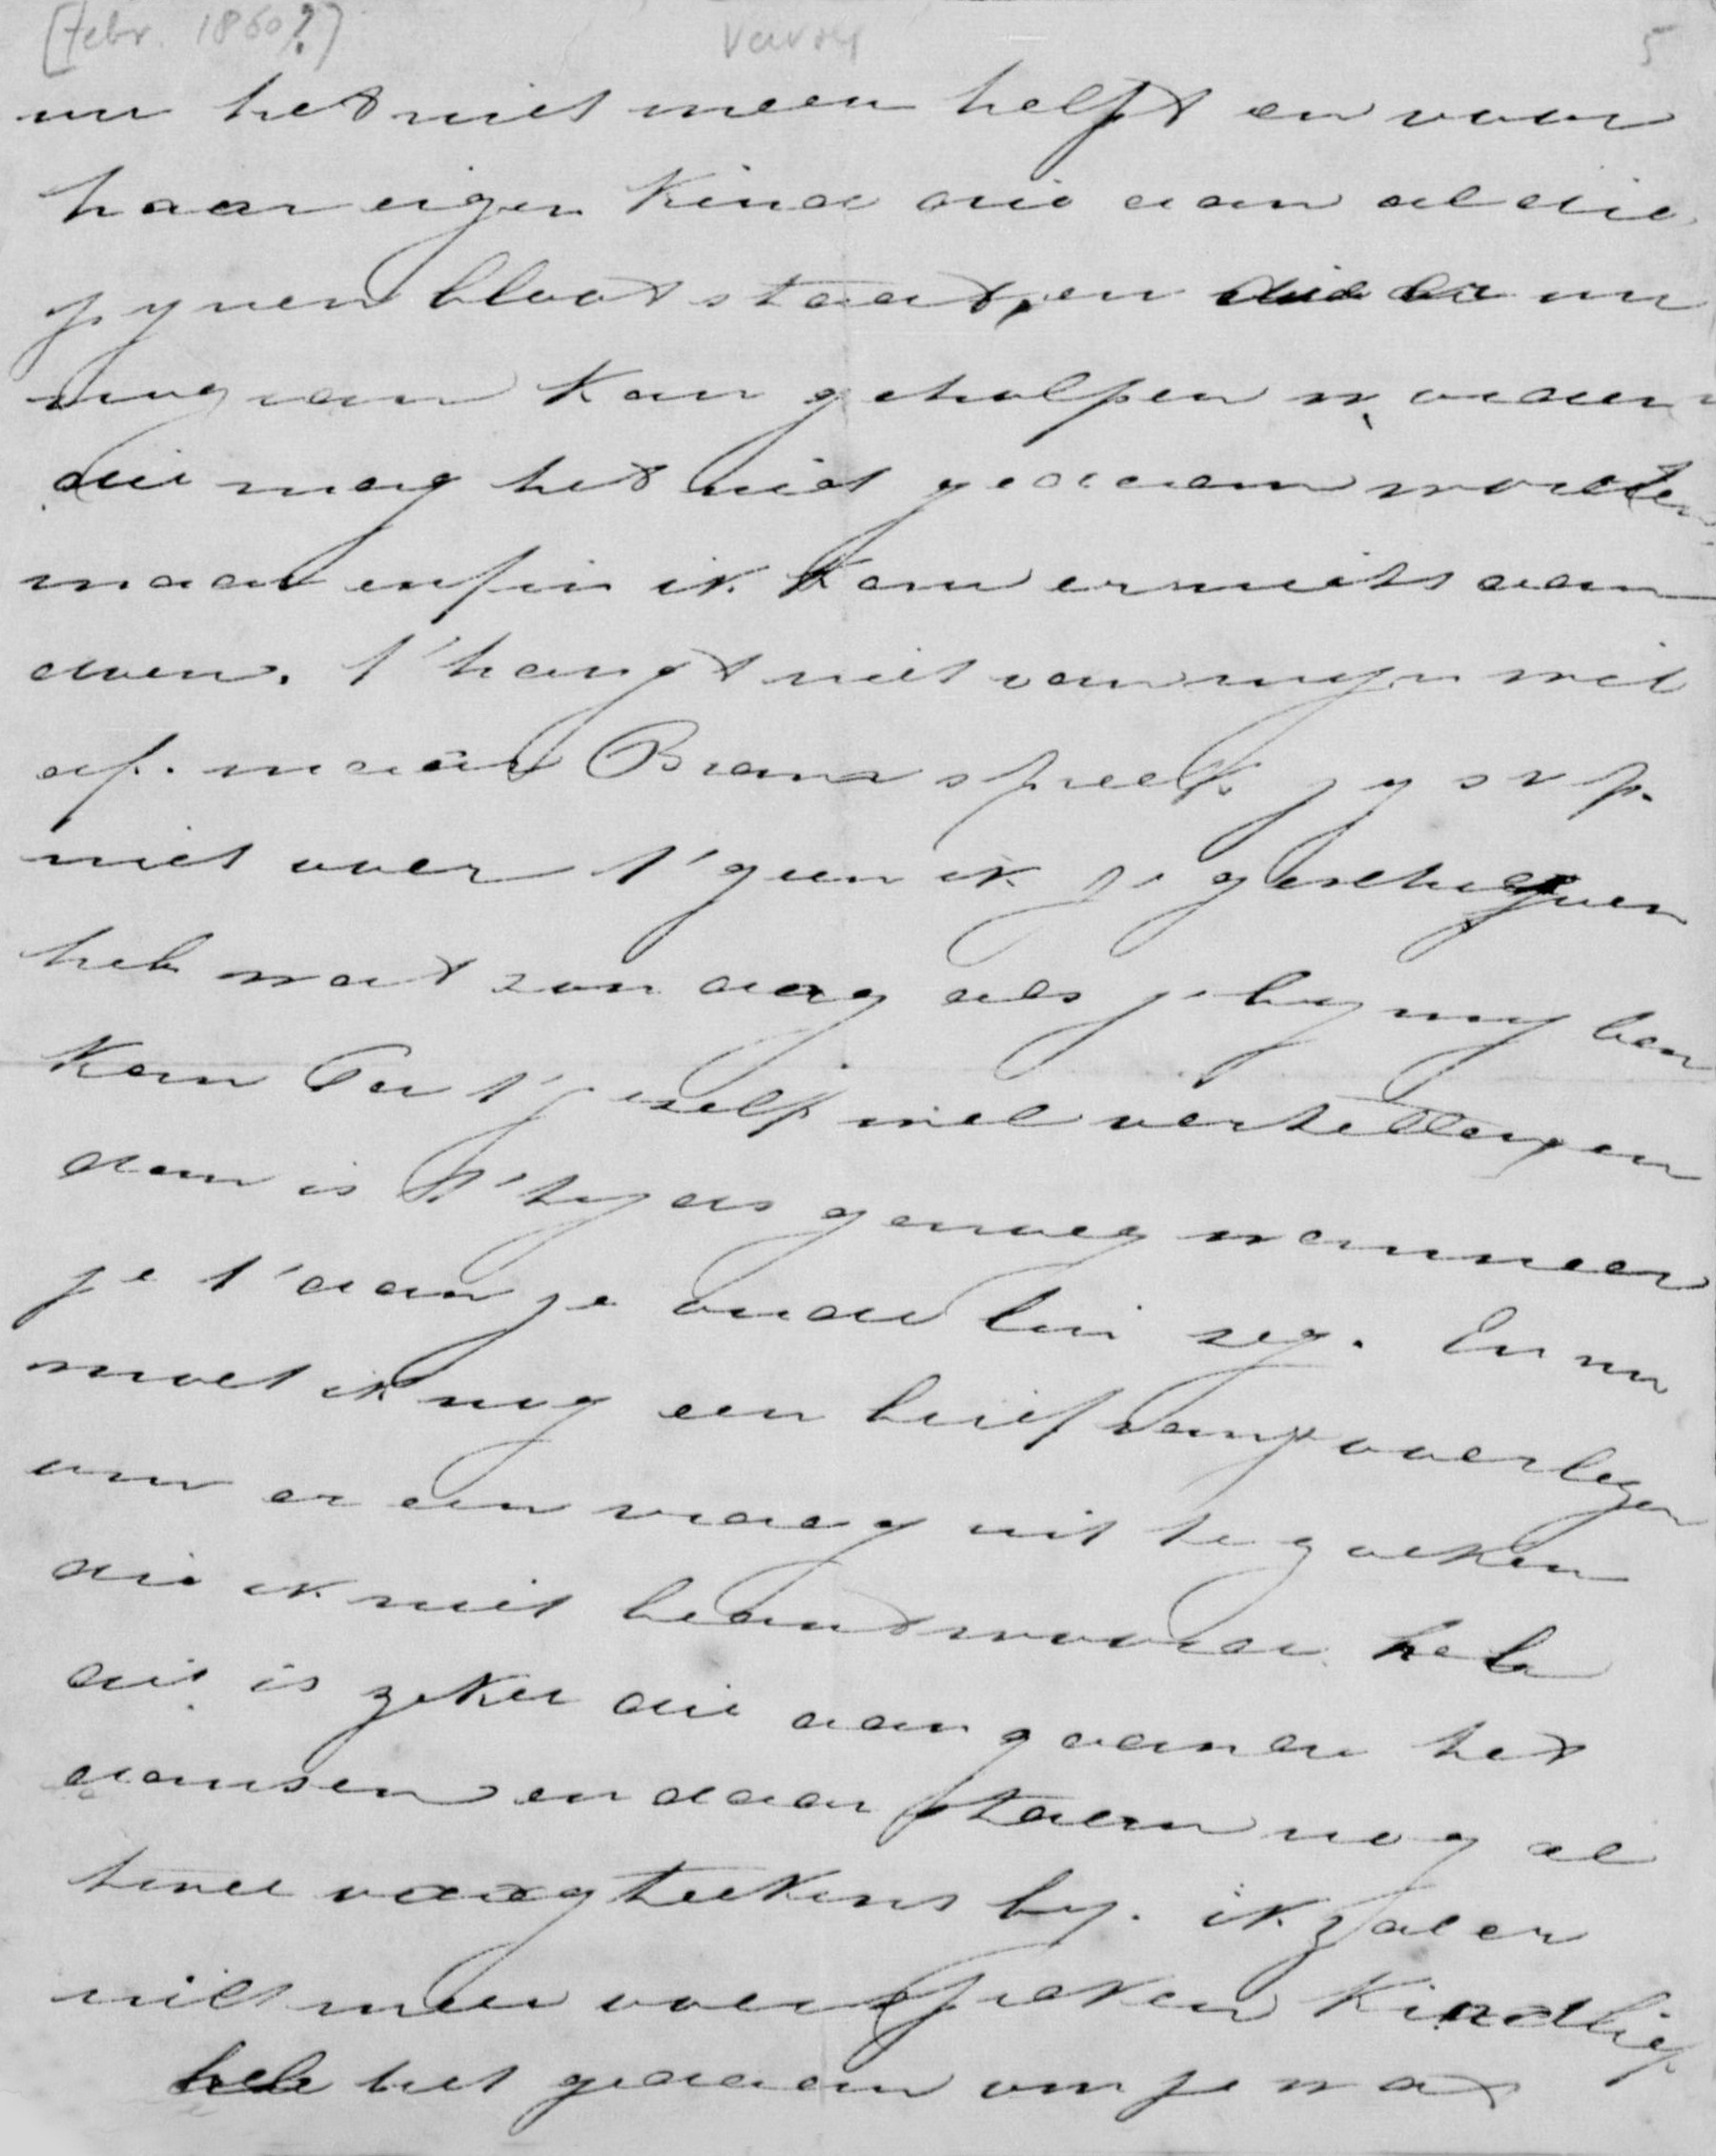 [Febr. 1860?] Vervolg 5
nu het niet meer helpt en voor
haar eigen kind die aan al die
pynen bloot staat, en die er nu
nog van kan geholpen worden
die mag het niet gedaan worden
maar enfin ik kan er niets aan
doen. t'hangt niet van myn wil
af. maar Bram spreek jy svp.
niet over t'geen ik je geschreven
heb want zondag als je by my ben
kan Pa t'jezelf wel vertellen en
dan is t'tyds genoeg wanneer
je t'aan je oude lui zeg. En nu
moet ik nog een brief van je overlezen
om er een vraag uit te zoeken
die ik niet beantwoorde heb
dit is zeker die aangaande het
dansen en daar staan nog al
twee vraagteekens by. ik zal er
niet meer over spreken kindlief
heb het gedaan om je wat